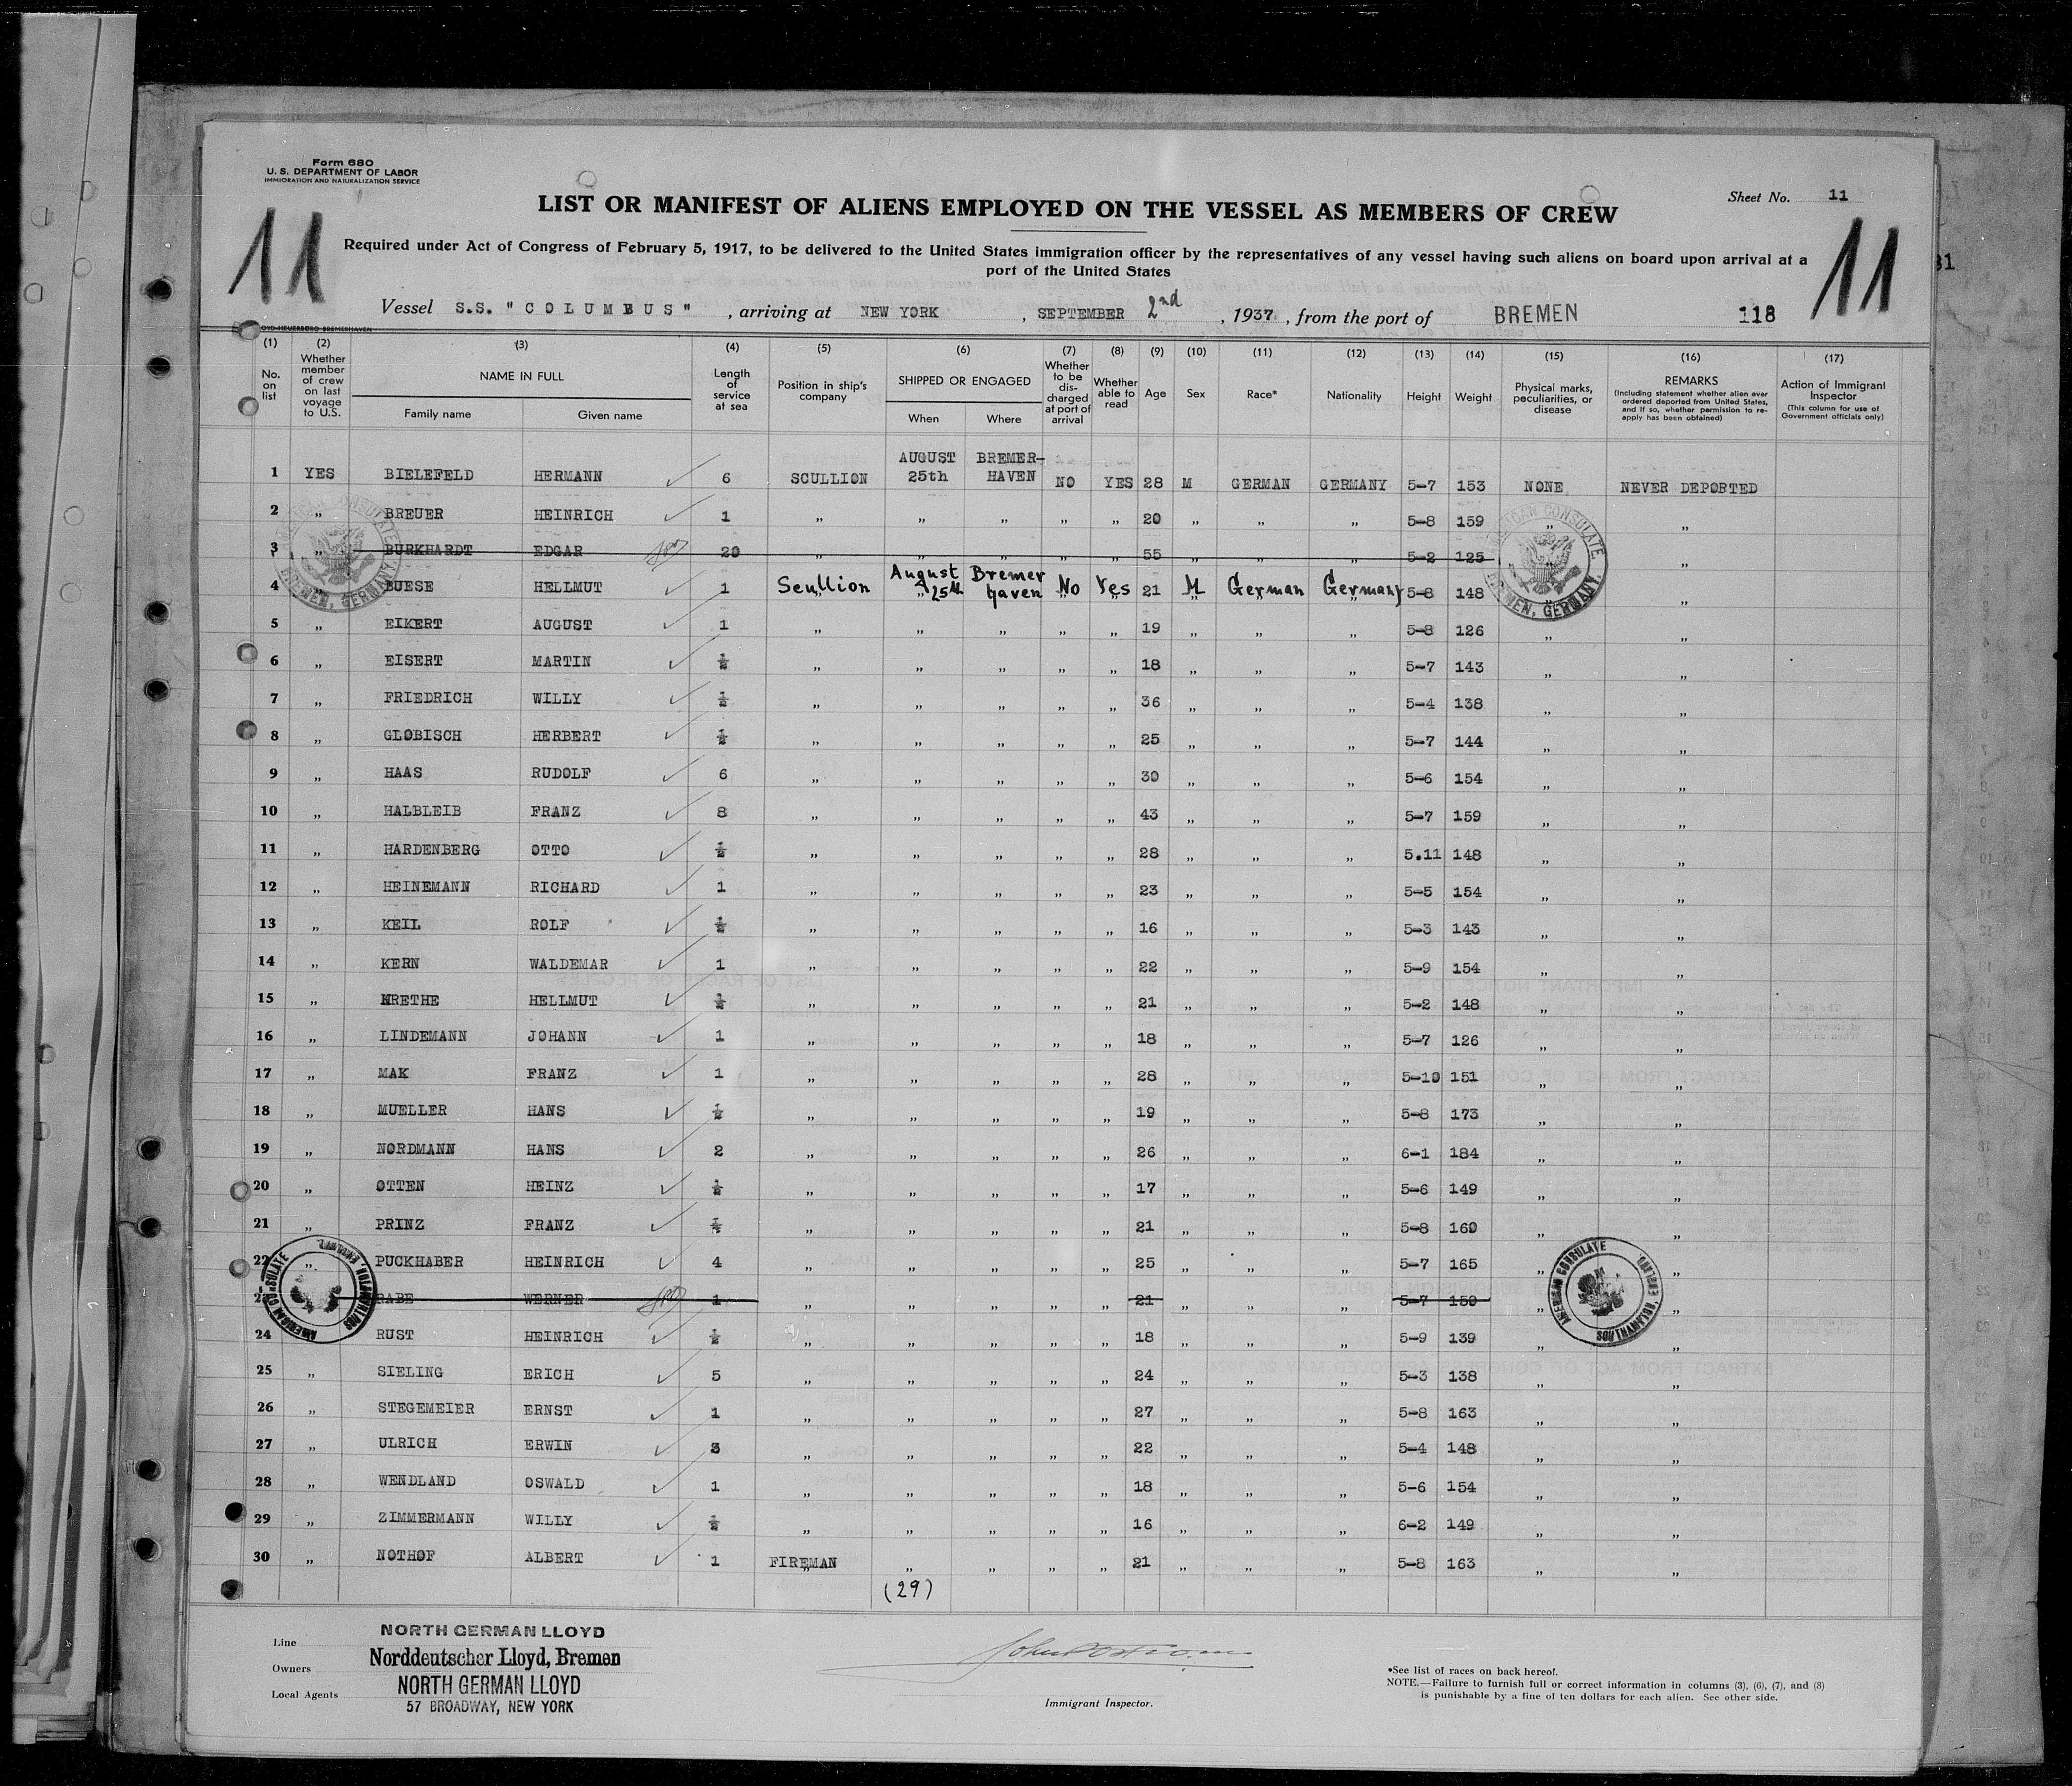 Form 680
U. S. DEPARTMENT OF LABOR
IMMIGRATION AND NATURALIZATION SERVICE
Sheet No. 11
LIST OR MANIFEST OF ALIENS EMPLOYED ON THE VESSEL AS MEMBERS OF CREW
11
11
Required under Act of Congress of February 5, 1917, to be delivered to the United States immigration officer by the representatives of any vessel having such aliens on board upon arrival at a
port of the United States
Vessel S.S. "COLUMBUS", arriving at NEW YORK, SEPTEMBER 2nd, 1937, from the port of BREMEN 118
(1) No. on list
(2) Whether member of crew on last voyage to U.S.
(3) NAME IN FULL Family name Given name
(4) Length of service at sea
(5) Position in ship's company
(6) SHIPPED OR ENGAGED When Where
(7) Whether to be discharged at port of arrival
(8) Whether able to read
(9) Age
(10) Sex
(11) Race*
(12) Nationality
(13) Height
(14) Weight
(15) Physical marks, peculiarities, or disease
(16) REMARKS (Including statement whether alien ever ordered deported from United States, and if so, whether permission to reapply has been obtained)
(17) Action of Immigrant Inspector (This column for use of Government officials only)
1 YES BIELEFELD HERMANN 6 SCULLION AUGUST 25th BREMER-HAVEN NO YES 28 M GERMAN GERMANY 5-7 153 NONE NEVER DEPORTED
2 " BREUER HEINRICH 1 " " " " " 20 " " " 5-8 159 " "
3 " BURKHARDT EDGAR 20 " " " " " 55 " " " 5-2 125 " "
4 " BUESE HELLMUT 1 Scullion August 25th Bremerhaven No Yes 21 M German Germany 5-8 148 " "
5 " EIKERT AUGUST 1 " " " " " 19 " " " 5-8 126 " "
6 " EISERT MARTIN ½ " " " " " 18 " " " 5-7 143 " "
7 " FRIEDRICH WILLY ½ " " " " " 36 " " " 5-4 138 " "
8 " GLOBISCH HERBERT ½ " " " " " 25 " " " 5-7 144 " "
9 " HAAS RUDOLF 6 " " " " " 30 " " " 5-6 154 " "
10 " HALBLEIB FRANZ 8 " " " " " 43 " " " 5-7 159 " "
11 " HARDENBERG OTTO ½ " " " " " 28 " " " 5.11 148 " "
12 " HEINEMANN RICHARD 1 " " " " " 23 " " " 5-5 154 " "
13 " KEIL ROLF ½ " " " " " 16 " " " 5-3 143 " "
14 " KERN WALDEMAR 1 " " " " " 22 " " " 5-9 154 " "
15 " KRETHE HELLMUT ½ " " " " " 21 " " " 5-2 148 " "
16 " LINDEMANN JOHANN 1 " " " " " 18 " " " 5-7 126 " "
17 " MAK FRANZ 1 " " " " " 28 " " " 5-10 151 " "
18 " MUELLER HANS ½ " " " " " 19 " " " 5-8 173 " "
19 " NORDMANN HANS 2 " " " " " 26 " " " 6-1 184 " "
20 " OTTEN HEINZ ½ " " " " " 17 " " " 5-6 149 " "
21 " PRINZ FRANZ ½ " " " " " 21 " " " 5-8 160 " "
22 " PUCKHABER HEINRICH 4 " " " " " 25 " " " 5-7 165 " "
23 RABE WERNER 1 " " " " " 21 " " " 5-7 150 " "
24 RUST HEINRICH ½ " " " " " 18 " " " 5-9 139 " "
25 " SIELING ERICH 5 " " " " " 24 " " " 5-3 138 " "
26 " STEGEMEIER ERNST 1 " " " " " 27 " " " 5-8 163 " "
27 " ULRICH ERWIN 3 " " " " " 22 " " " 5-4 148 " "
28 " WENDLAND OSWALD 1 " " " " " 18 " " " 5-6 154 " "
29 " ZIMMERMANN WILLY ½ " " " " " 16 " " " 6-2 149 " "
30 " NOTHOF ALBERT 1 FIREMAN " " " " 21 " " " 5-8 163 " "
(29)
AMERICAN CONSULATE BREMEN, GERMANY.
AMERICAN CONSULATE BREMEN, GERMANY.
AMERICAN CONSULATE SOUTHAMPTON, ENGLAND.
AMERICAN CONSULATE SOUTHAMPTON, ENGLAND.
Line NORTH GERMAN LLOYD
Owners Norddeutscher Lloyd, Bremen
Local Agents NORTH GERMAN LLOYD
57 BROADWAY, NEW YORK
Immigrant Inspector.
*See list of races on back hereof.
NOTE.—Failure to furnish full or correct information in columns (3), (6), (7), and (8)
is punishable by a fine of ten dollars for each alien. See other side.